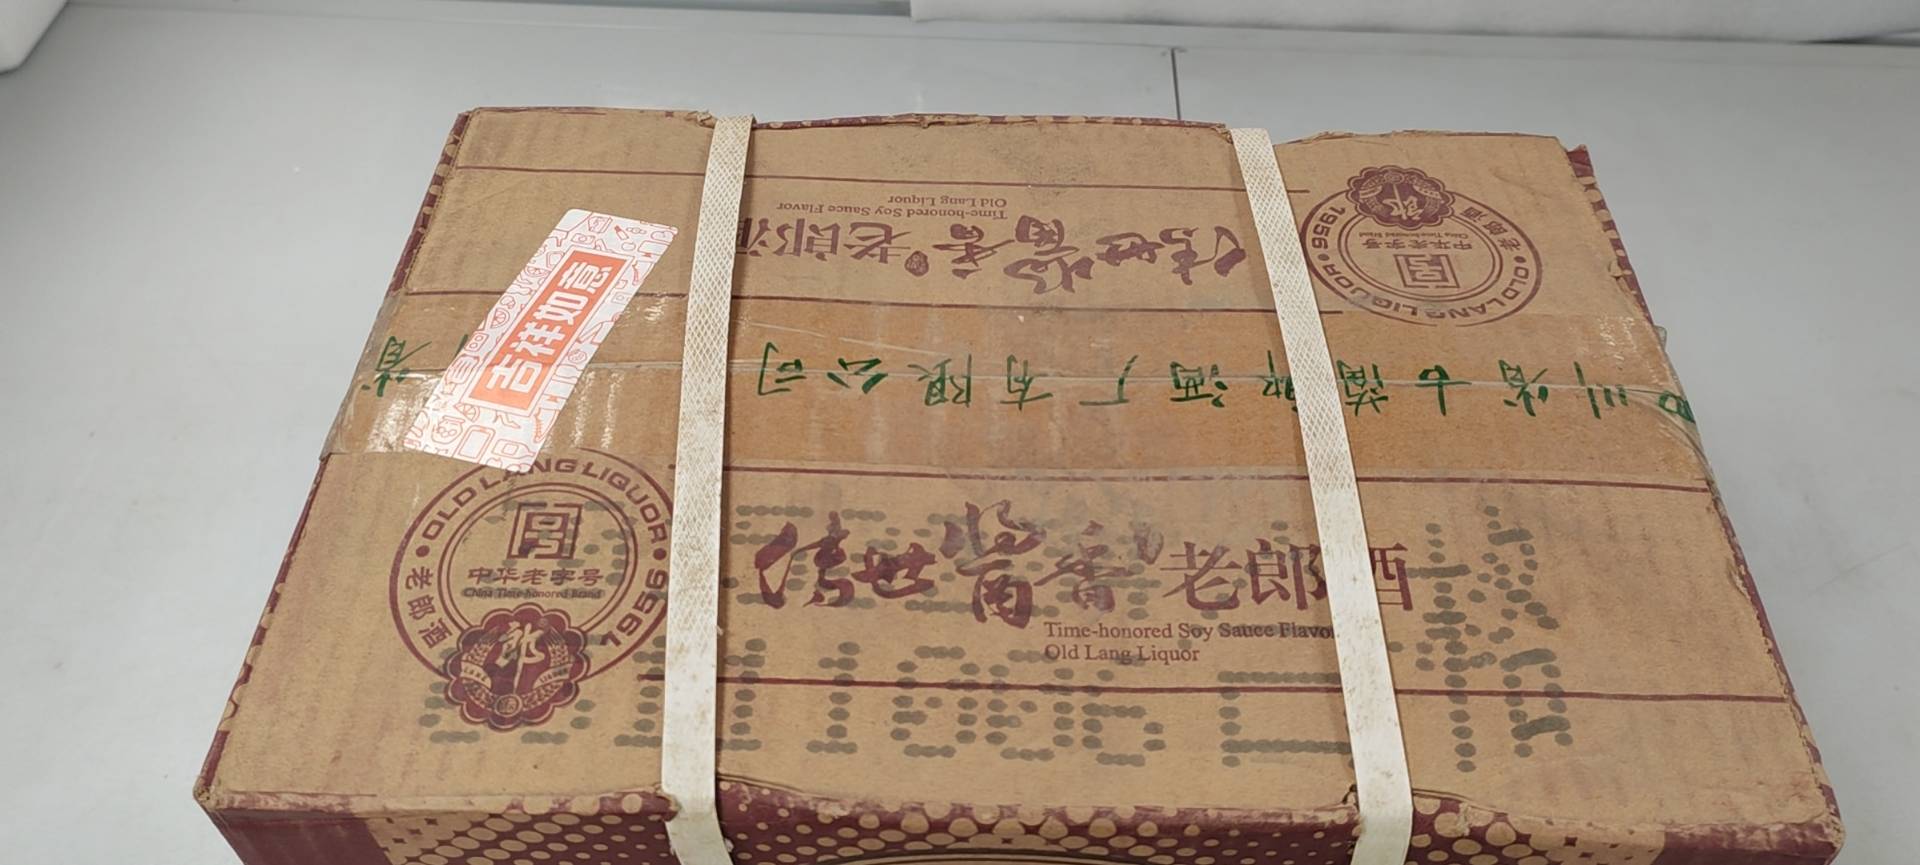 Time-honored Soy Sauce Flavor
Old Lang Liquor
传世酱香老郎酒
1956 · OLD LANG LIQUOR · 老郎酒
中华老字号
China Time-honored Brand
郎
吉祥如意
省
四川省古蔺郎酒厂有限公司
OLD LANG LIQUOR · 1956
老郎酒
中华老字号
China Time-honored Brand
郎
传世酱香老郎酒
Time-honored Soy Sauce Flavor
Old Lang Liquor